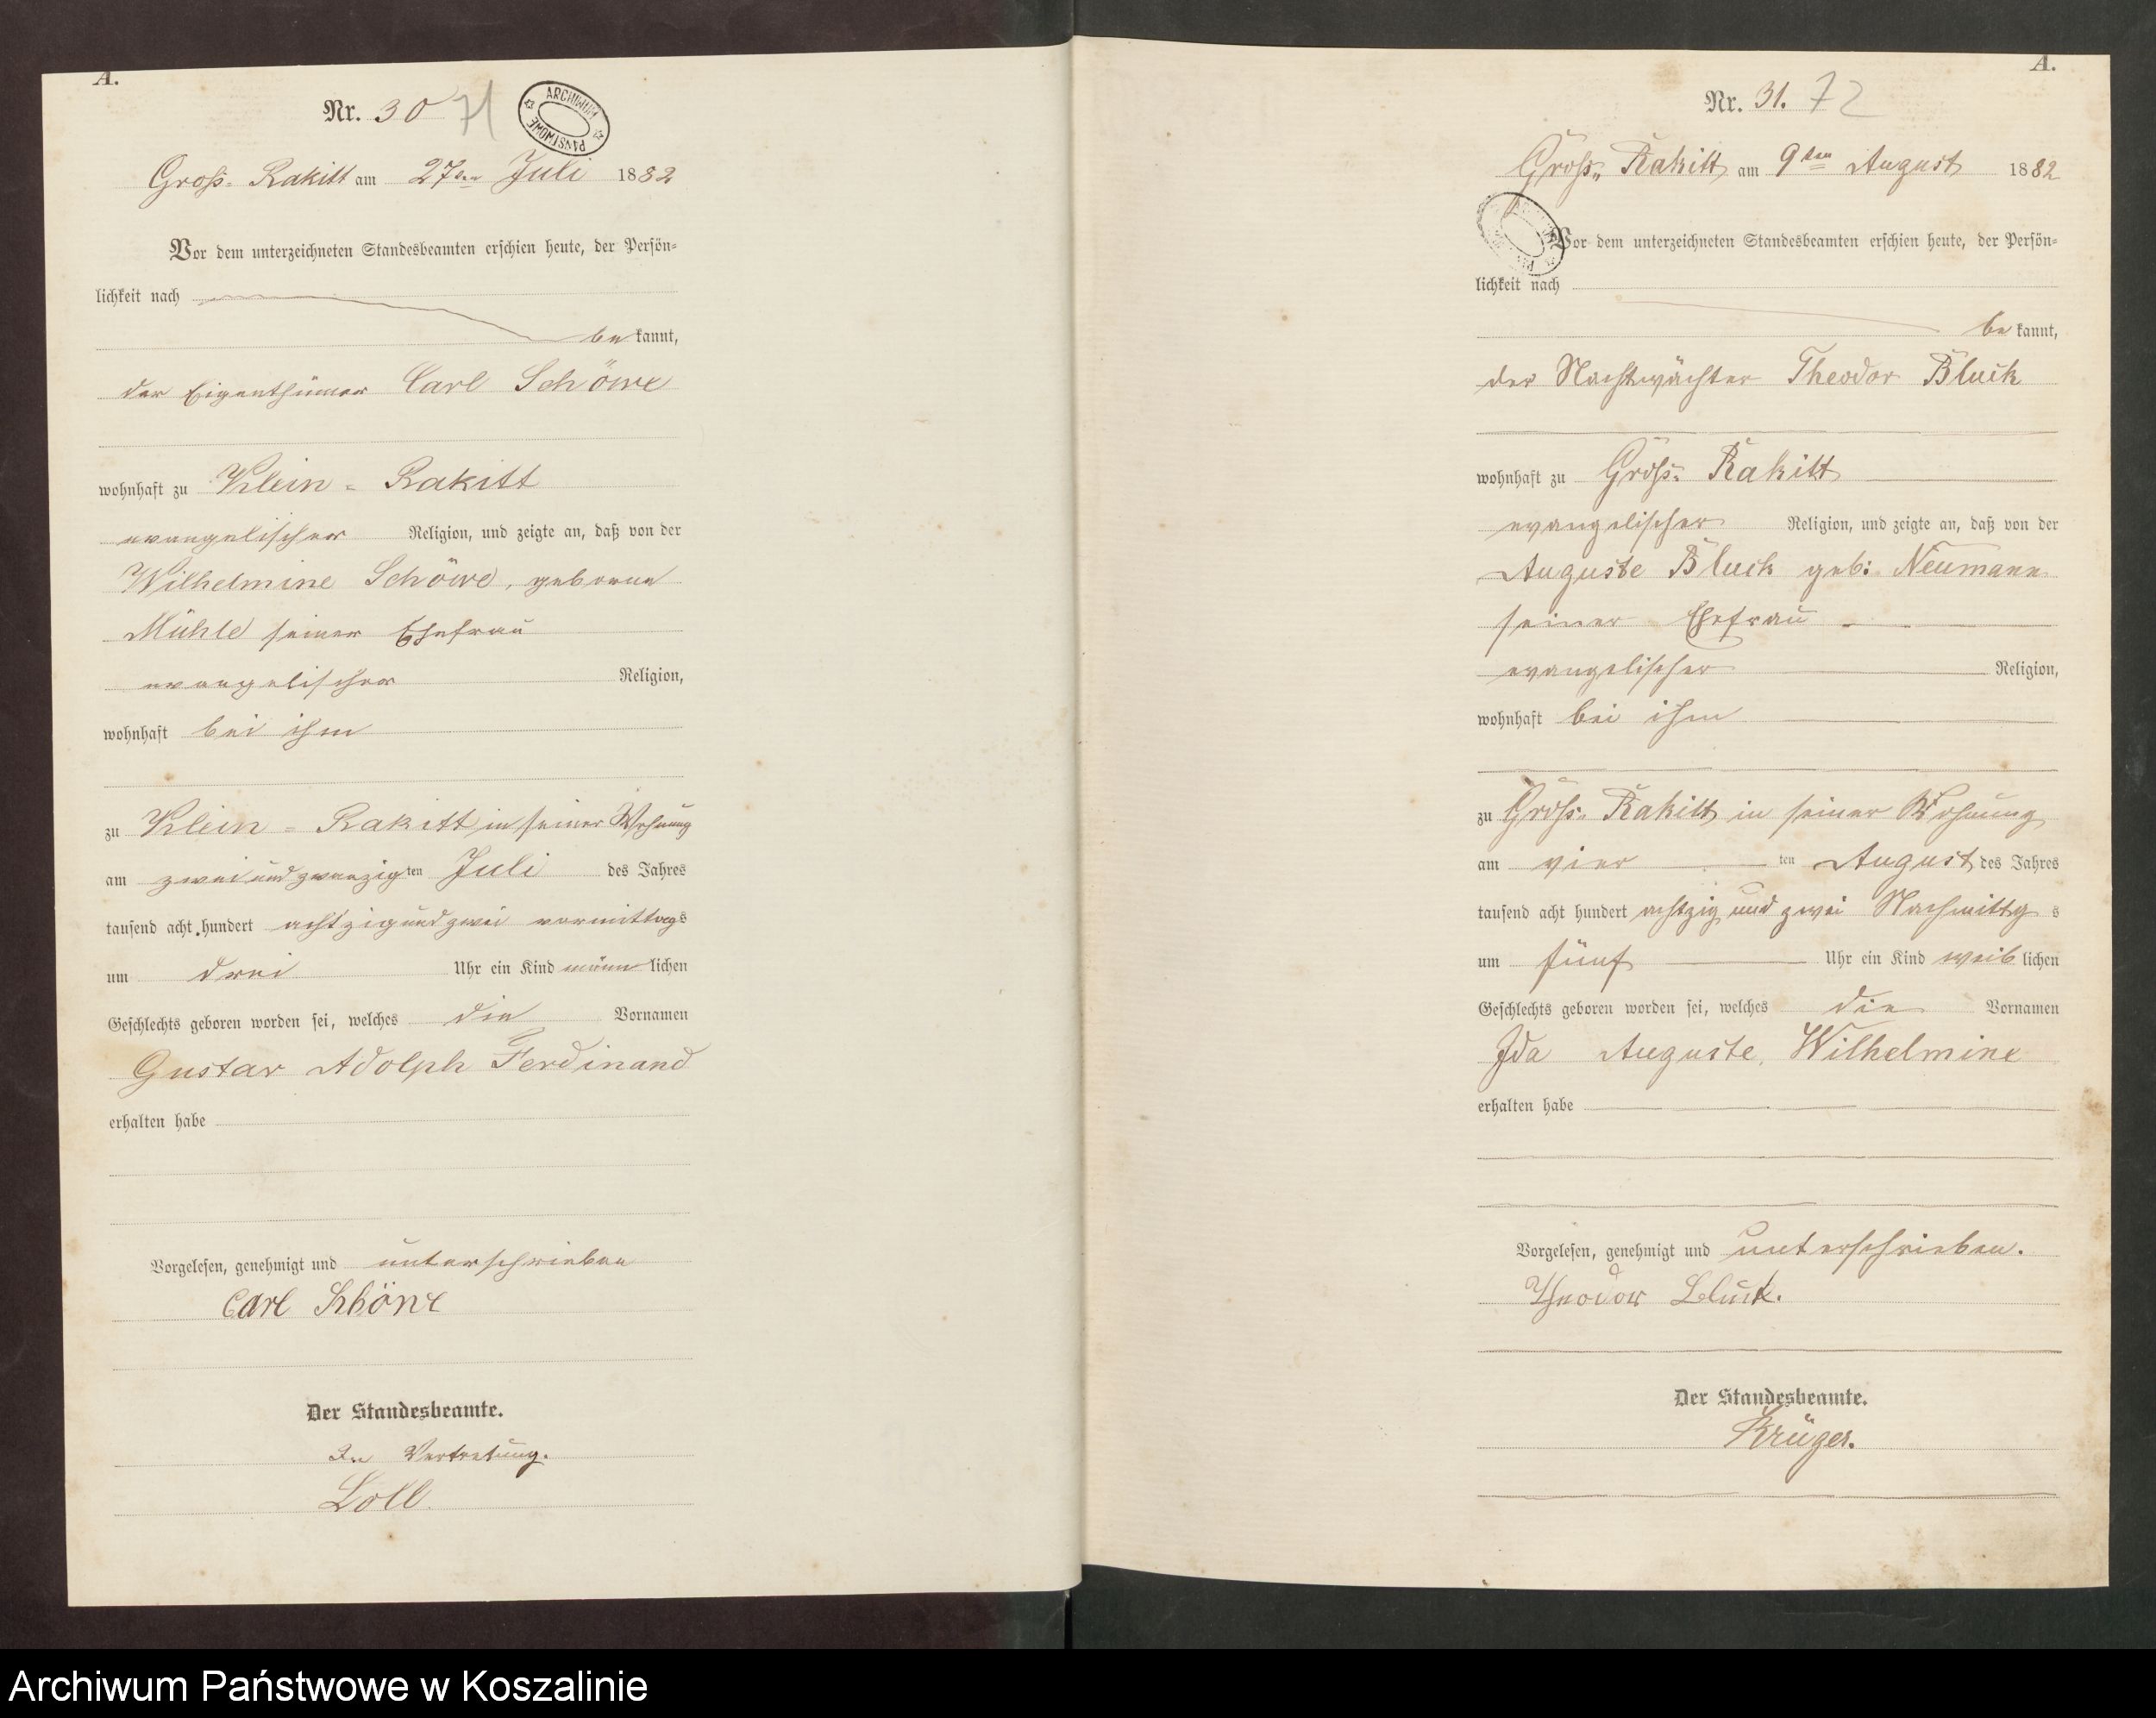 A.
Nr. 30 71
ARCHIWUM PAŃSTWOWE
Groß-Rakitt am 27ten Juli 1882
Vor dem unterzeichneten Standesbeamten erschien heute, der Persön-
lichkeit nach
bekannt,
der Eigenthümer Carl Schöwe
wohnhaft zu Klein-Rakitt
evangelischer Religion, und zeigte an, daß von der
Wilhelmine Schöwe, geborene
Mühle seiner Ehefrau
evangelischer Religion,
wohnhaft bei ihm
zu Klein-Rakitt in seiner Wohnung
am zwei und zwanzigten Juli des Jahres
tausend acht hundert achtzig und zwei vormittags
um drei Uhr ein Kind männlichen
Geschlechts geboren worden sei, welches die Vornamen
Gustav Adolph Ferdinand
erhalten habe
Vorgelesen, genehmigt und unterschrieben
Carl Schöwe
Der Standesbeamte.
In Vertretung.
Loll.
A.
Nr. 31. 72
Groß-Rakitt am 9ten August 1882
Vor dem unterzeichneten Standesbeamten erschien heute, der Persön-
lichkeit nach
bekannt,
der Nachtwächter Theodor Bluck
wohnhaft zu Groß-Rakitt
evangelischer Religion, und zeigte an, daß von der
Auguste Bluck geb: Neumann
seiner Ehefrau
evangelischer Religion,
wohnhaft bei ihm
zu Groß-Rakitt in seiner Wohnung
am vier ten August des Jahres
tausend acht hundert achtzig und zwei Nachmittgs
um fünf Uhr ein Kind weiblichen
Geschlechts geboren worden sei, welches die Vornamen
Ida Auguste, Wilhelmine
erhalten habe
Vorgelesen, genehmigt und unterschrieben.
Theodor Bluck.
Der Standesbeamte.
Krüger.
Archiwum Państwowe w Koszalinie